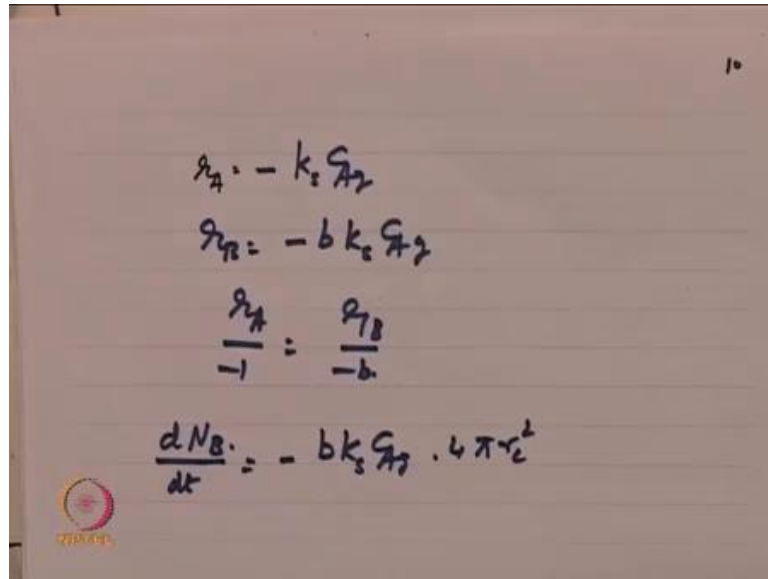 10
r_A = - k_s C_Ag
r_B = - b k_s C_Ag
r_A / -1 = r_B / -b.
dN_B. / dt = - b k_s C_Ag . 4 π r_c^2
NPTEL